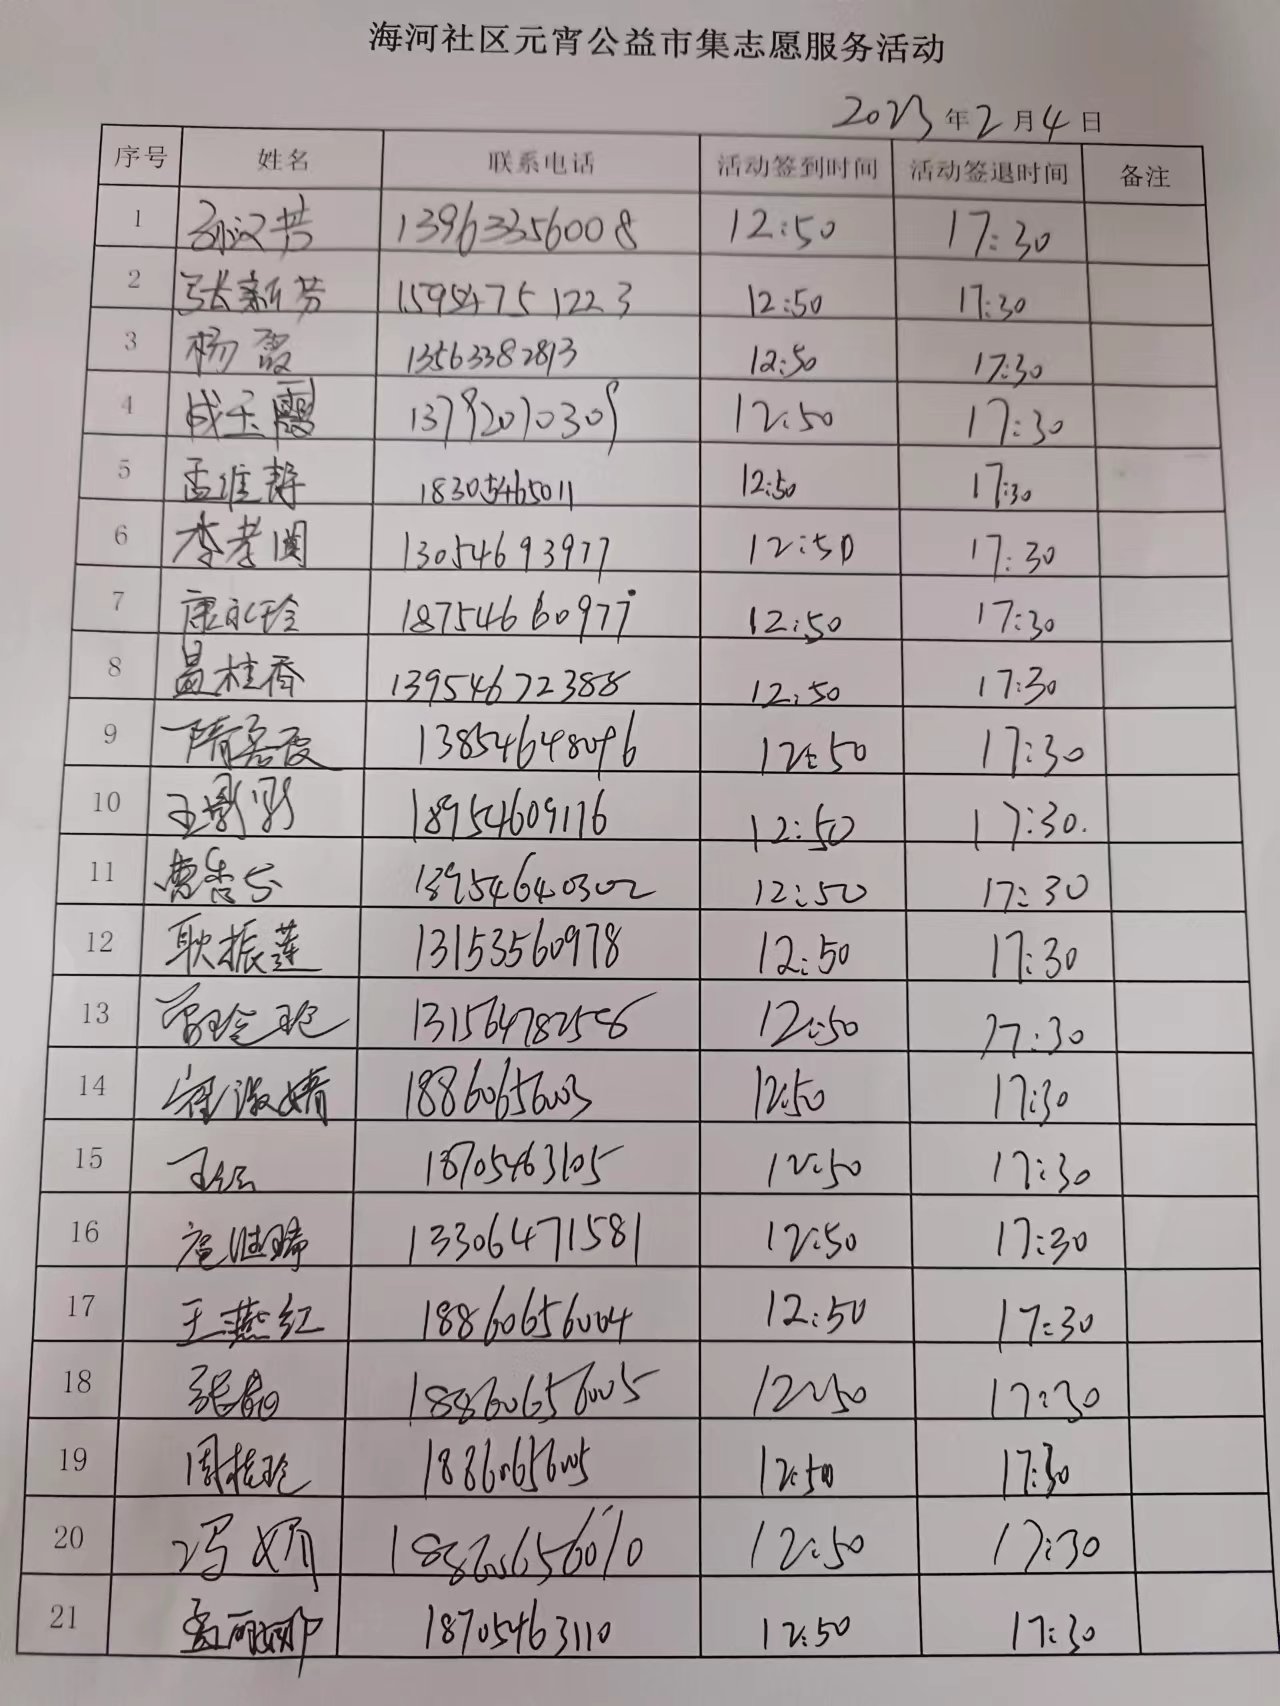 海河社区元宵公益市集志愿服务活动
2023年2月4日
序号 姓名 联系电话 活动签到时间 活动签退时间 备注
1 孙汉芳 13963356008 12:50 17:30
2 张新芳 15954751223 12:50 17:30
3 杨霞 13563382813 12:50 17:30
4 成玉霞 13792070309 12:50 17:30
5 孟维静 18305465011 12:50 17:30
6 李孝国 13054693977 12:50 17:30
7 康永玲 18754660977 12:50 17:30
8 温桂香 13954672388 12:50 17:30
9 隋秀霞 13854648096 12:50 17:30
10 王彩彩 18954609176 12:50 17:30.
11 13954640302 12:50 17:30
12 耿振莲 13153560978 12:50 17:30
13 13156478258 12:50 17:30
14 崔淑婧 18860656003 12:50 17:30
15 18705463105 12:50 17:30
16 13306471581 12:50 17:30
17 王燕红 18860656004 12:50 17:30
18 张晶 18860656005 12:50 17:30
19 周桂玲 18860656005 12:50 17:30
20 冯娇 18860656010 12:50 17:30
21 孟丽娜 18705463110 12:50 17:30